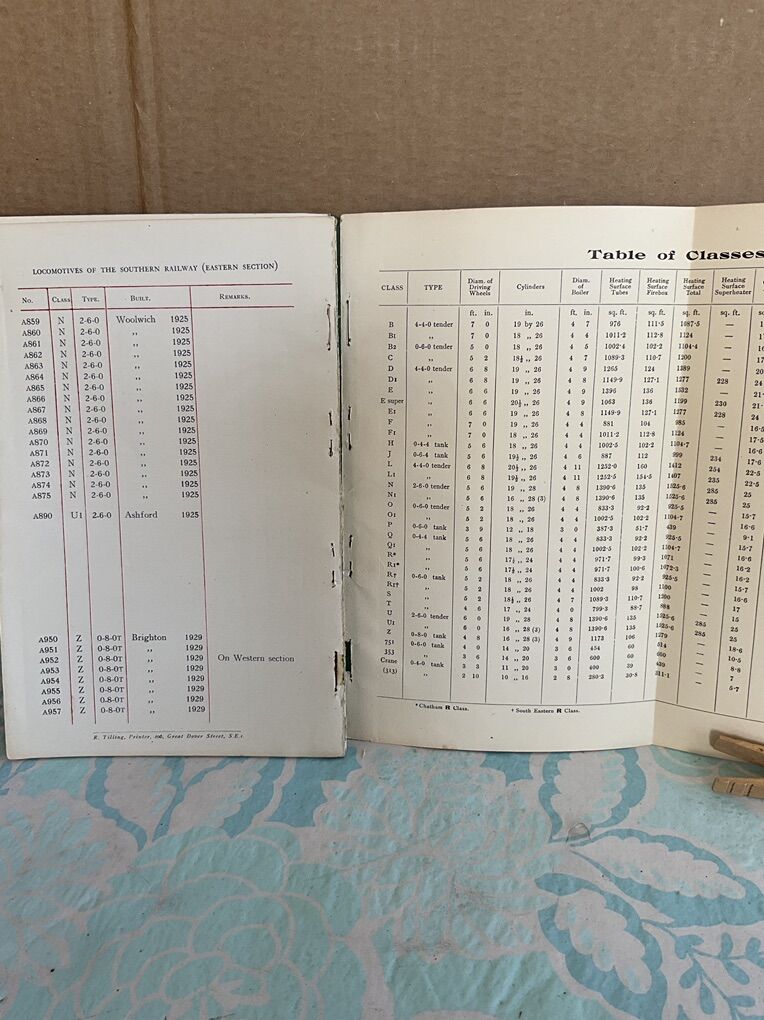 LOCOMOTIVES OF THE SOUTHERN RAILWAY (EASTERN SECTION)
No. CLASS TYPE. BUILT. REMARKS.
A859 N 2-6-0 Woolwich 1925
A860 N 2-6-0 ,, 1925
A861 N 2-6-0 ,, 1925
A862 N 2-6-0 ,, 1925
A863 N 2-6-0 ,, 1925
A864 N 2-6-0 ,, 1925
A865 N 2-6-0 ,, 1925
A866 N 2-6-0 ,, 1925
A867 N 2-6-0 ,, 1925
A868 N 2-6-0 ,, 1925
A869 N 2-6-0 ,, 1925
A870 N 2-6-0 ,, 1925
A871 N 2-6-0 ,, 1925
A872 N 2-6-0 ,, 1925
A873 N 2-6-0 ,, 1925
A874 N 2-6-0 ,, 1925
A875 N 2-6-0 ,, 1925
A890 U1 2-6-0 Ashford 1925
A950 Z 0-8-0T Brighton 1929
A951 Z 0-8-0T ,, 1929
A952 Z 0-8-0T ,, 1929 On Western section
A953 Z 0-8-0T ,, 1929
A954 Z 0-8-0T ,, 1929
A955 Z 0-8-0T ,, 1929
A956 Z 0-8-0T ,, 1929
A957 Z 0-8-0T ,, 1929
R. Tilling, Printer, 106, Great Dover Street, S.E.1
Table of Classes
CLASS TYPE Diam. of Driving Wheels Cylinders Diam. of Boiler Heating Surface Tubes Heating Surface Firebox Heating Surface Total Heating Surface Superheater
ft. in. in. ft. in. sq. ft. sq. ft. sq. ft. sq. ft.
B 4-4-0 tender 7 0 19 by 26 4 7 976 111·5 1087·5 —
B1 ,, 7 0 18 ,, 26 4 4 1011·2 112·8 1124 —
B2 0-6-0 tender 5 0 18 ,, 26 4 5 1002·4 102·2 1104·4 —
C ,, 5 2 18½ ,, 26 4 7 1089·3 110·7 1200 —
D 4-4-0 tender 6 8 19 ,, 26 4 9 1265 124 1389 —
D1 ,, 6 8 19 ,, 26 4 8 1149·9 127·1 1277 228
E ,, 6 6 19 ,, 26 4 9 1396 136 1532 —
E super ,, 6 6 20½ ,, 26 4 9 1063 136 1199 230
E1 ,, 6 6 19 ,, 26 4 8 1149·9 127·1 1277 228
F ,, 7 0 19 ,, 26 4 4 881 104 985 —
F1 ,, 7 0 18 ,, 26 4 4 1011·2 112·8 1124 —
H 0-4-4 tank 5 6 18 ,, 26 4 4 1002·5 102·2 1104·7 —
J 0-6-4 tank 5 6 19½ ,, 26 4 6 887 112 999 234
L 4-4-0 tender 6 8 20½ ,, 26 4 11 1252·0 160 1412 254
L1 ,, 6 8 19½ ,, 26 4 11 1252·5 154·5 1407 235
N 2-6-0 tender 5 6 19 ,, 28 4 8 1390·6 135 1525·6 285
N1 ,, 5 6 16 ,, 28 (3) 4 8 1390·6 135 1525·6 285
O 0-6-0 tender 5 2 18 ,, 26 4 4 833·3 92·2 925·5 —
O1 ,, 5 2 18 ,, 26 4 4 1002·5 102·2 1104·7 —
P 0-6-0 tank 3 9 12 ,, 18 3 0 387·3 51·7 439 —
Q 0-4-4 tank 5 6 18 ,, 26 4 4 833·3 92·2 925·5 —
Q1 ,, 5 6 18 ,, 26 4 4 1002·5 102·2 1104·7 —
R* ,, 5 6 17½ ,, 24 4 4 971·7 99·3 1071 —
R1* ,, 5 6 17½ ,, 24 4 4 971·7 100·6 1072·3 —
R† 0-6-0 tank 5 2 18 ,, 26 4 4 833·3 92·2 925·5 —
R1† ,, 5 2 18 ,, 26 4 4 1002 98 1100 —
S ,, 5 2 18½ ,, 26 4 7 1089·3 110·7 1200 —
T ,, 4 6 17 ,, 24 4 0 799·3 88·7 888 —
U 2-6-0 tender 6 0 19 ,, 28 4 8 1390·6 135 1525·6 285
U1 ,, 6 0 16 ,, 28 (3) 4 8 1390·6 135 1525·6 285
Z 0-8-0 tank 4 8 16 ,, 28 (3) 4 9 1173 106 1279 —
751 0-6-0 tank 4 0 14 ,, 20 3 6 454 60 514 —
353 ,, 3 6 14 ,, 20 3 6 600 60 —
Crane 0-4-0 tank 3 3 11 ,, 20 3 0 400 39 439 —
(313) ,, 2 10 10 ,, 16 2 8 280·3 30·8 311·1 —
* Chatham R Class. † South Eastern R Class.